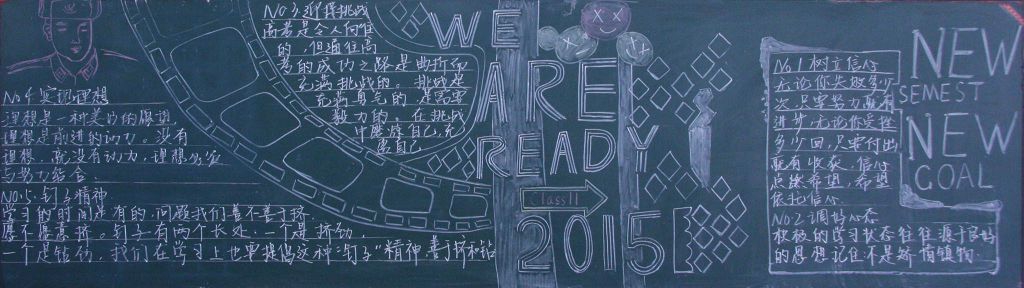 No.4 实现理想
理想是一种美好的愿望
理想是前进的动力。没有
理想，就没有动力，理想必定
与努力结合。
NO.5.钉子精神
学习的时间是有的，问题我们善不善于挤，
愿不愿意挤。钉子有两个长处：一个是挤劲
一个是钻劲，我们在学习上也要提倡这种"钉子"精神，善于挤和钻
NO.3.迎接挑战
高考是令人向往
的，但通往高
考的成功之路是曲折而
充满挑战的。挑战是
充满勇气的，是需要
毅力的。在挑战
中磨炼自己，充
实自己
WE
ARE
READY
Class11
2015
No.1 树立信心
无论你失败多少
次，只要努力就有
进步，无论你受挫
多少回，只要付出
就有收获，信心
点燃希望，希望
依托信心
NO.2 调好心态
积极的学习状态往往源于良好
的思想，记住：不是矫情镇物
NEW
SEMEST
NEW
GOAL